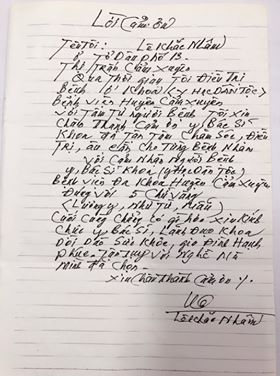 Lời Cảm ơn
Tên Tôi: Lê Khắc Nhâm
ở Tổ Dân phố 13.
Thị Trấn Cẩm Xuyên
Qua Thời gian Tôi Điều Trị
Bệnh ở Khoa (Y Học Dân Tộc)
Bệnh viện Huyện Cẩm Xuyên
với Tâm Tư người Bệnh Tôi xin
Chân Thành Cảm ơn y, Bác Sĩ
Khoa đã Tận Tâm Chăm Sóc, Điều
Trị, ân cần cho Từng Bệnh Nhân
với Cảm Nhận Người Bệnh
y, Bác Sĩ Khoa (y Học Dân Tộc)
Bệnh viện Đa Khoa Huyện Cẩm Xuyên
Đúng với 5 Chữ Vàng
(Lương y, Như Từ, Mẫu)
Cuối Cùng Chẳng có gì hơn xin Kính
Chúc y, Bác Sĩ, Lãnh Đạo Khoa
Dồi Dào Sức Khỏe, gia Đình Hạnh
phúc. Tận Tụy với Nghề Mà
Mình Đã Chọn.
Xin Chân Thành Cảm ơn ./.
Lê Khắc Nhâm